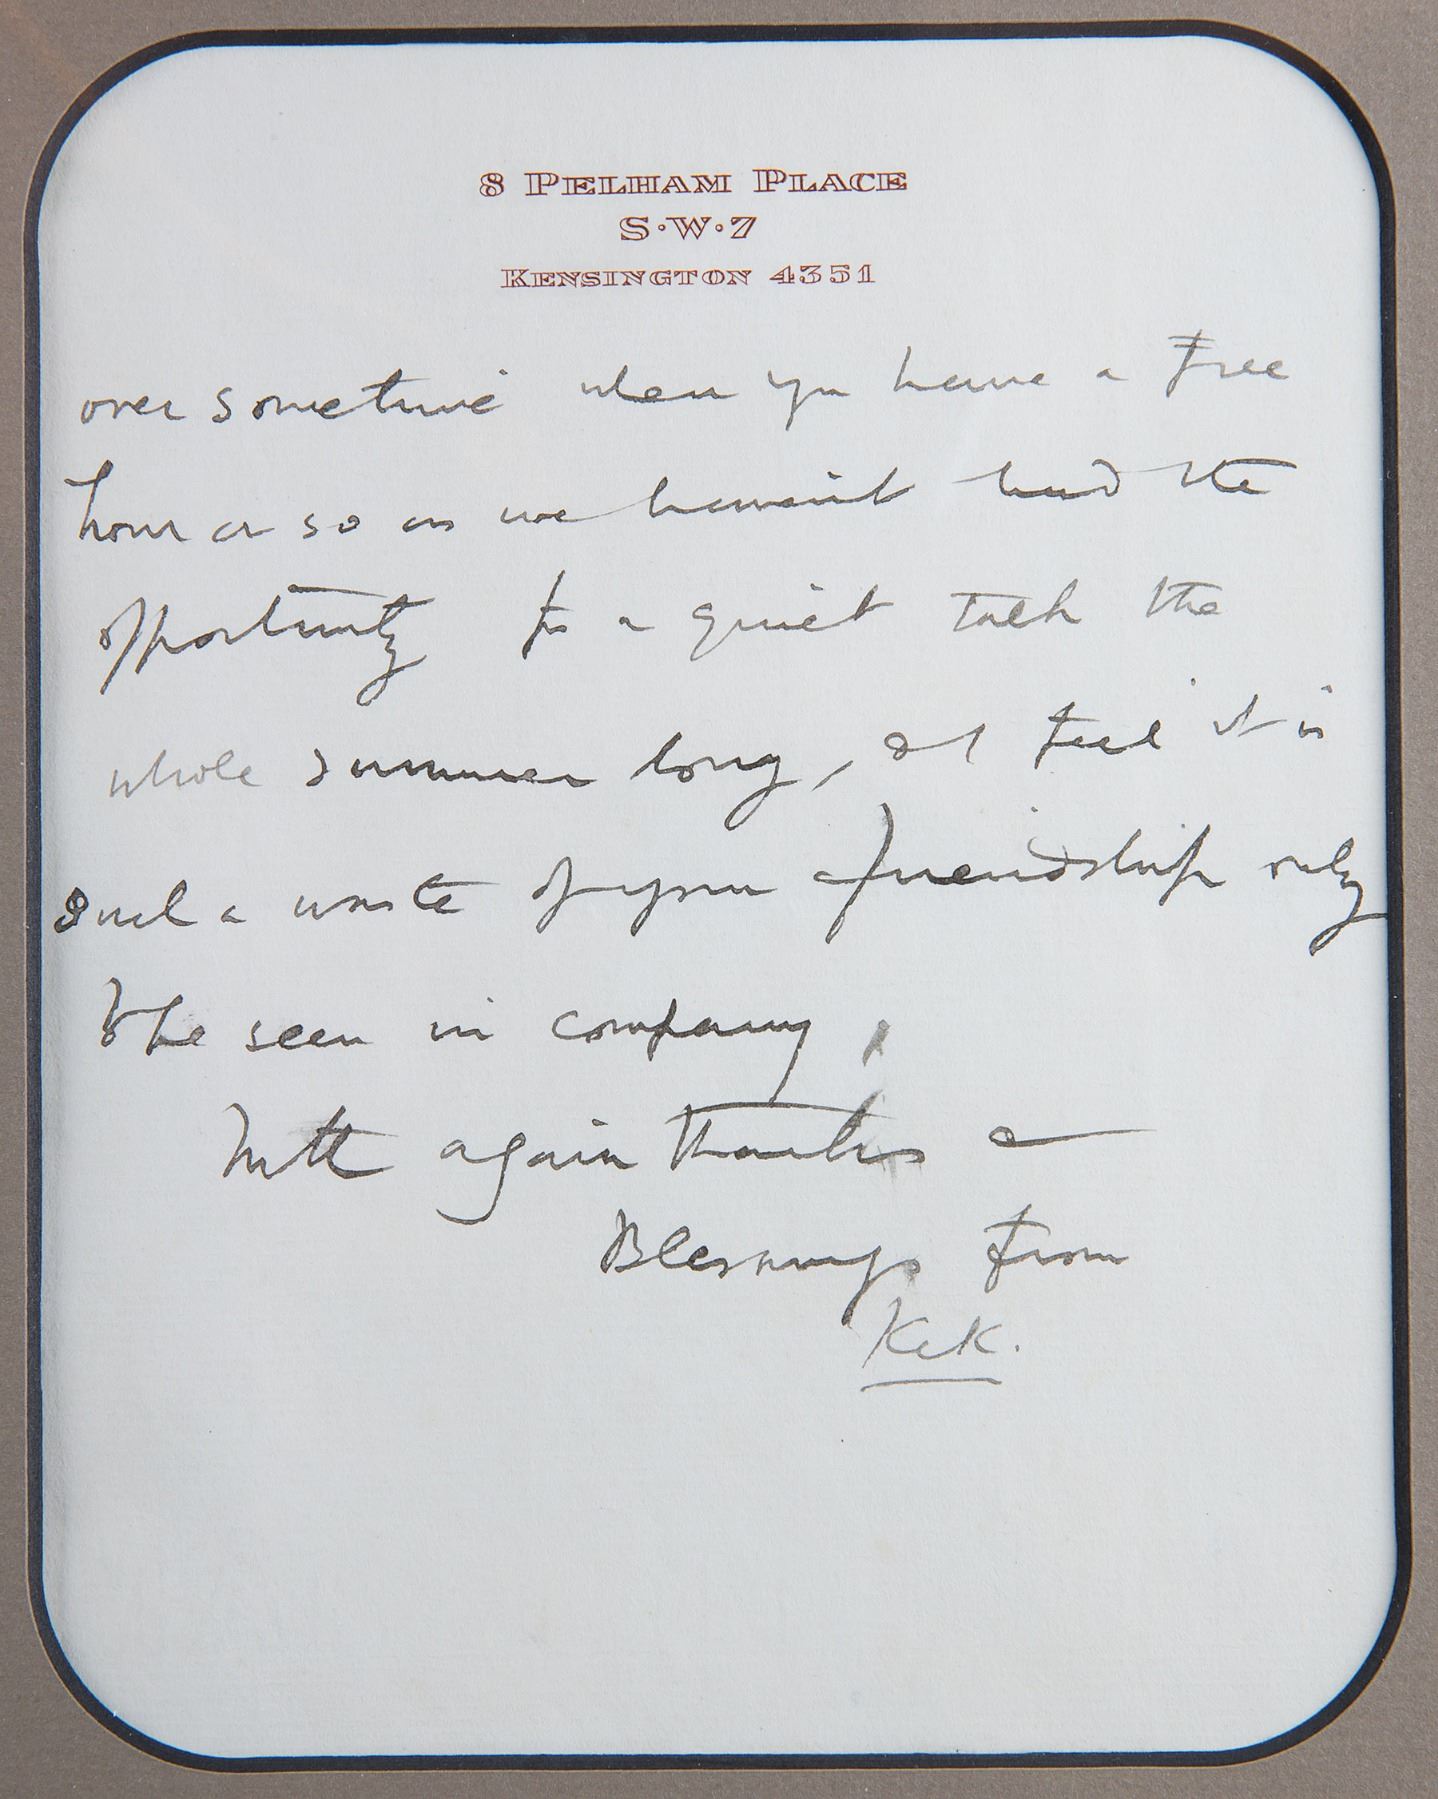 8 PELHAM PLACE
S·W·7
KENSINGTON 4351
over sometime when you have a free
hour or so as we haven't had the
opportunity for a quiet talk the
whole summer long, & I feel it is
such a waste of your friendship only
to be seen in company,
With again thanks &
Blessings from